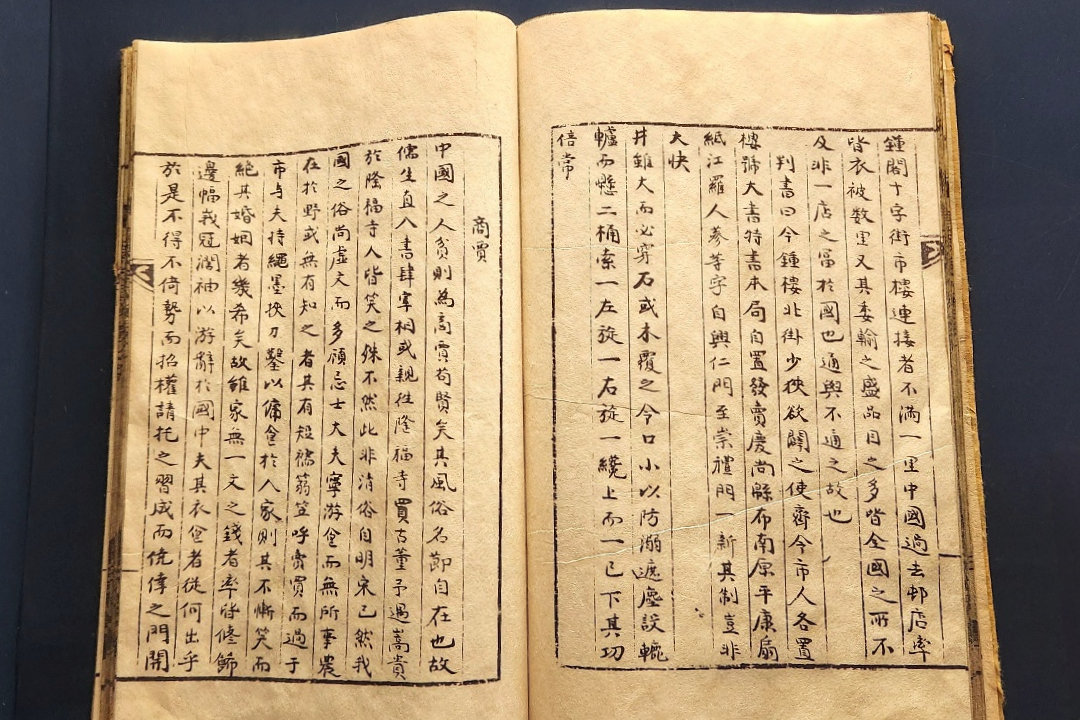 鍾閣十字街市樓連接者不滿一里中國過去邨店率
皆衣被数里又其委輸之盛品目之多皆全國之所不
及非一店之富於國也通與不通之故也
判書曰今鍾樓北街少狹欲闢之使齊今市人各置
樓號大書特書本局自置發賣慶尚縣布南原平康扇
紙江羅人蔘等字自興仁門至崇禮門一新其制豈非
大快
井雖大而必穿石或木覆之令口小以防溺遮塵設轆
轤而懸二桶索一左旋一右旋一纔上而一已下其功
倍常
商賈
中國之人貧則為商賈苟賢矣其風俗名節自在也故
儒生直入書肆宰相或親徃隆福寺買古董予遇嵩貴
於隆福寺人皆笑之殊不然此非清俗自明宋已然我
國之俗尚虛文而多顧忌士大夫寧游食而無所事農
在於野或無有知之者其有短襦蒻笠呼賣買而過于
市与夫持繩墨挾刀鑿以傭食於人家則其不慚笑而
絶其婚姻者幾希矣故雖家無一文之錢者率皆修飾
邊幅峩冠濶袖以游辭於國中夫其衣食者從何出乎
於是不得不倚勢而招權請托之習成而僥倖之門開